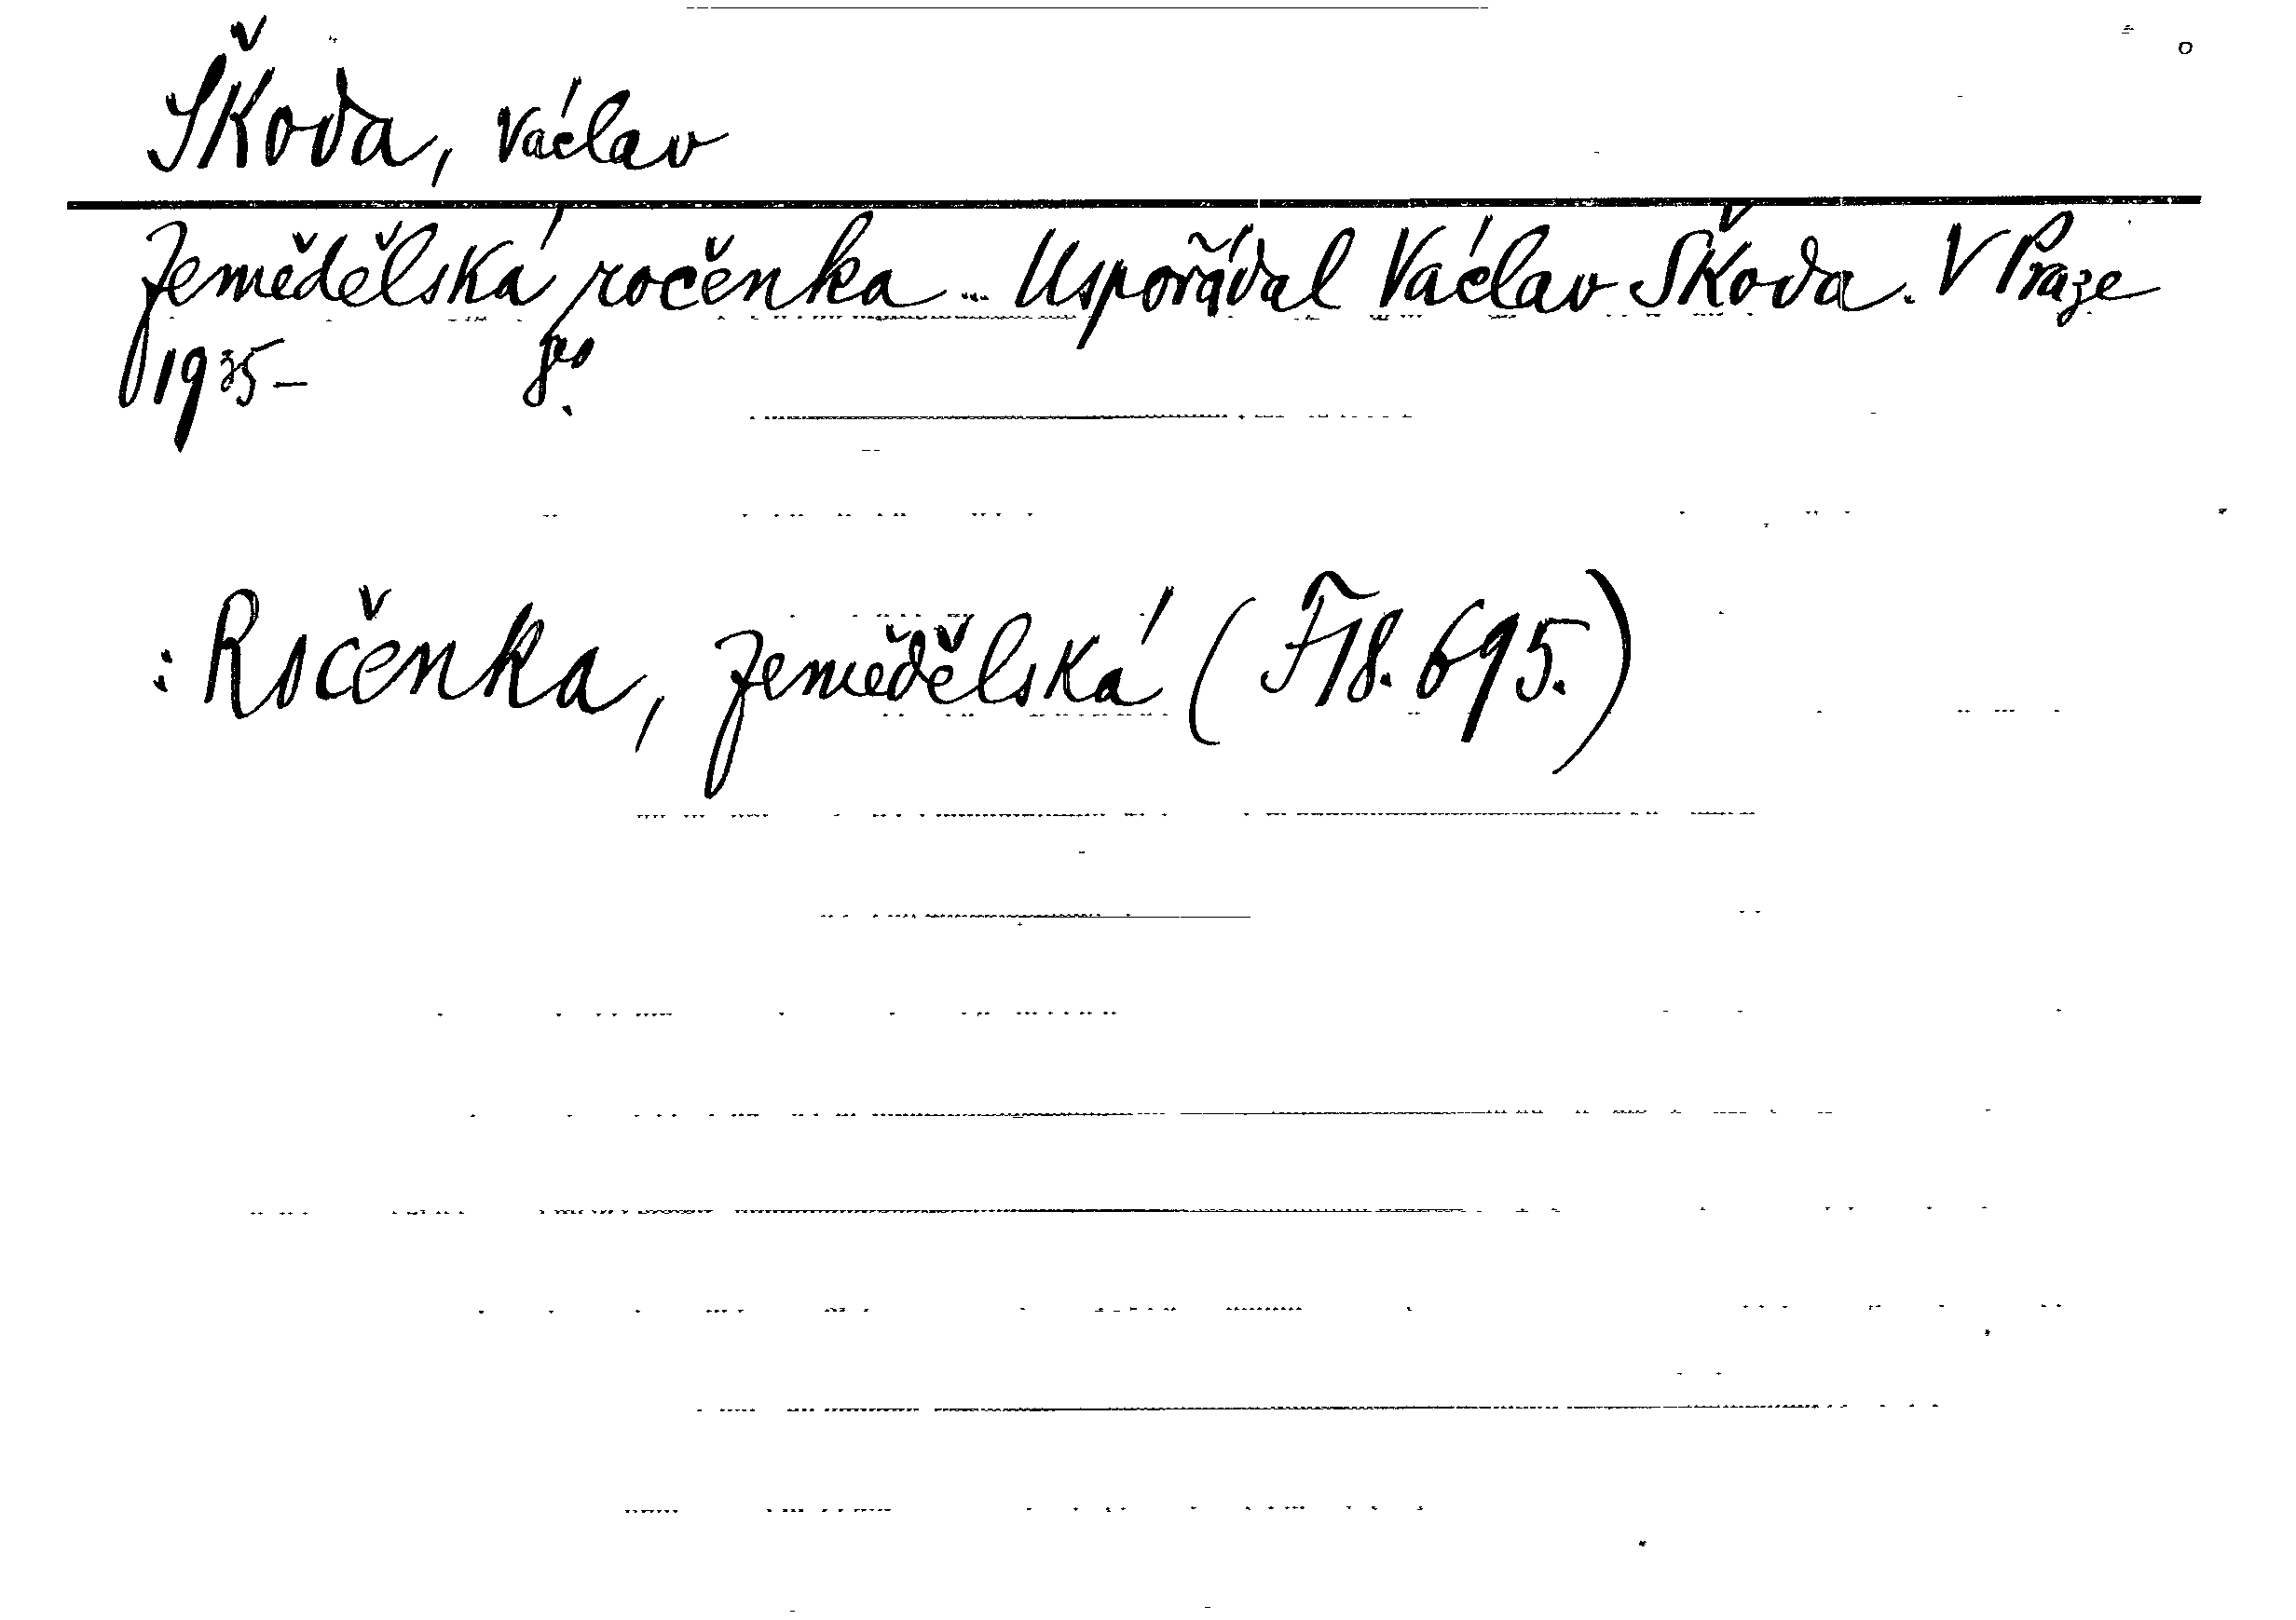 Škoda, Václav
Zemědělská ročenka... Uspořádal Václav Škoda. V Praze
1935- 8°.
: Ročenka, zemědělská (F 18.695.)